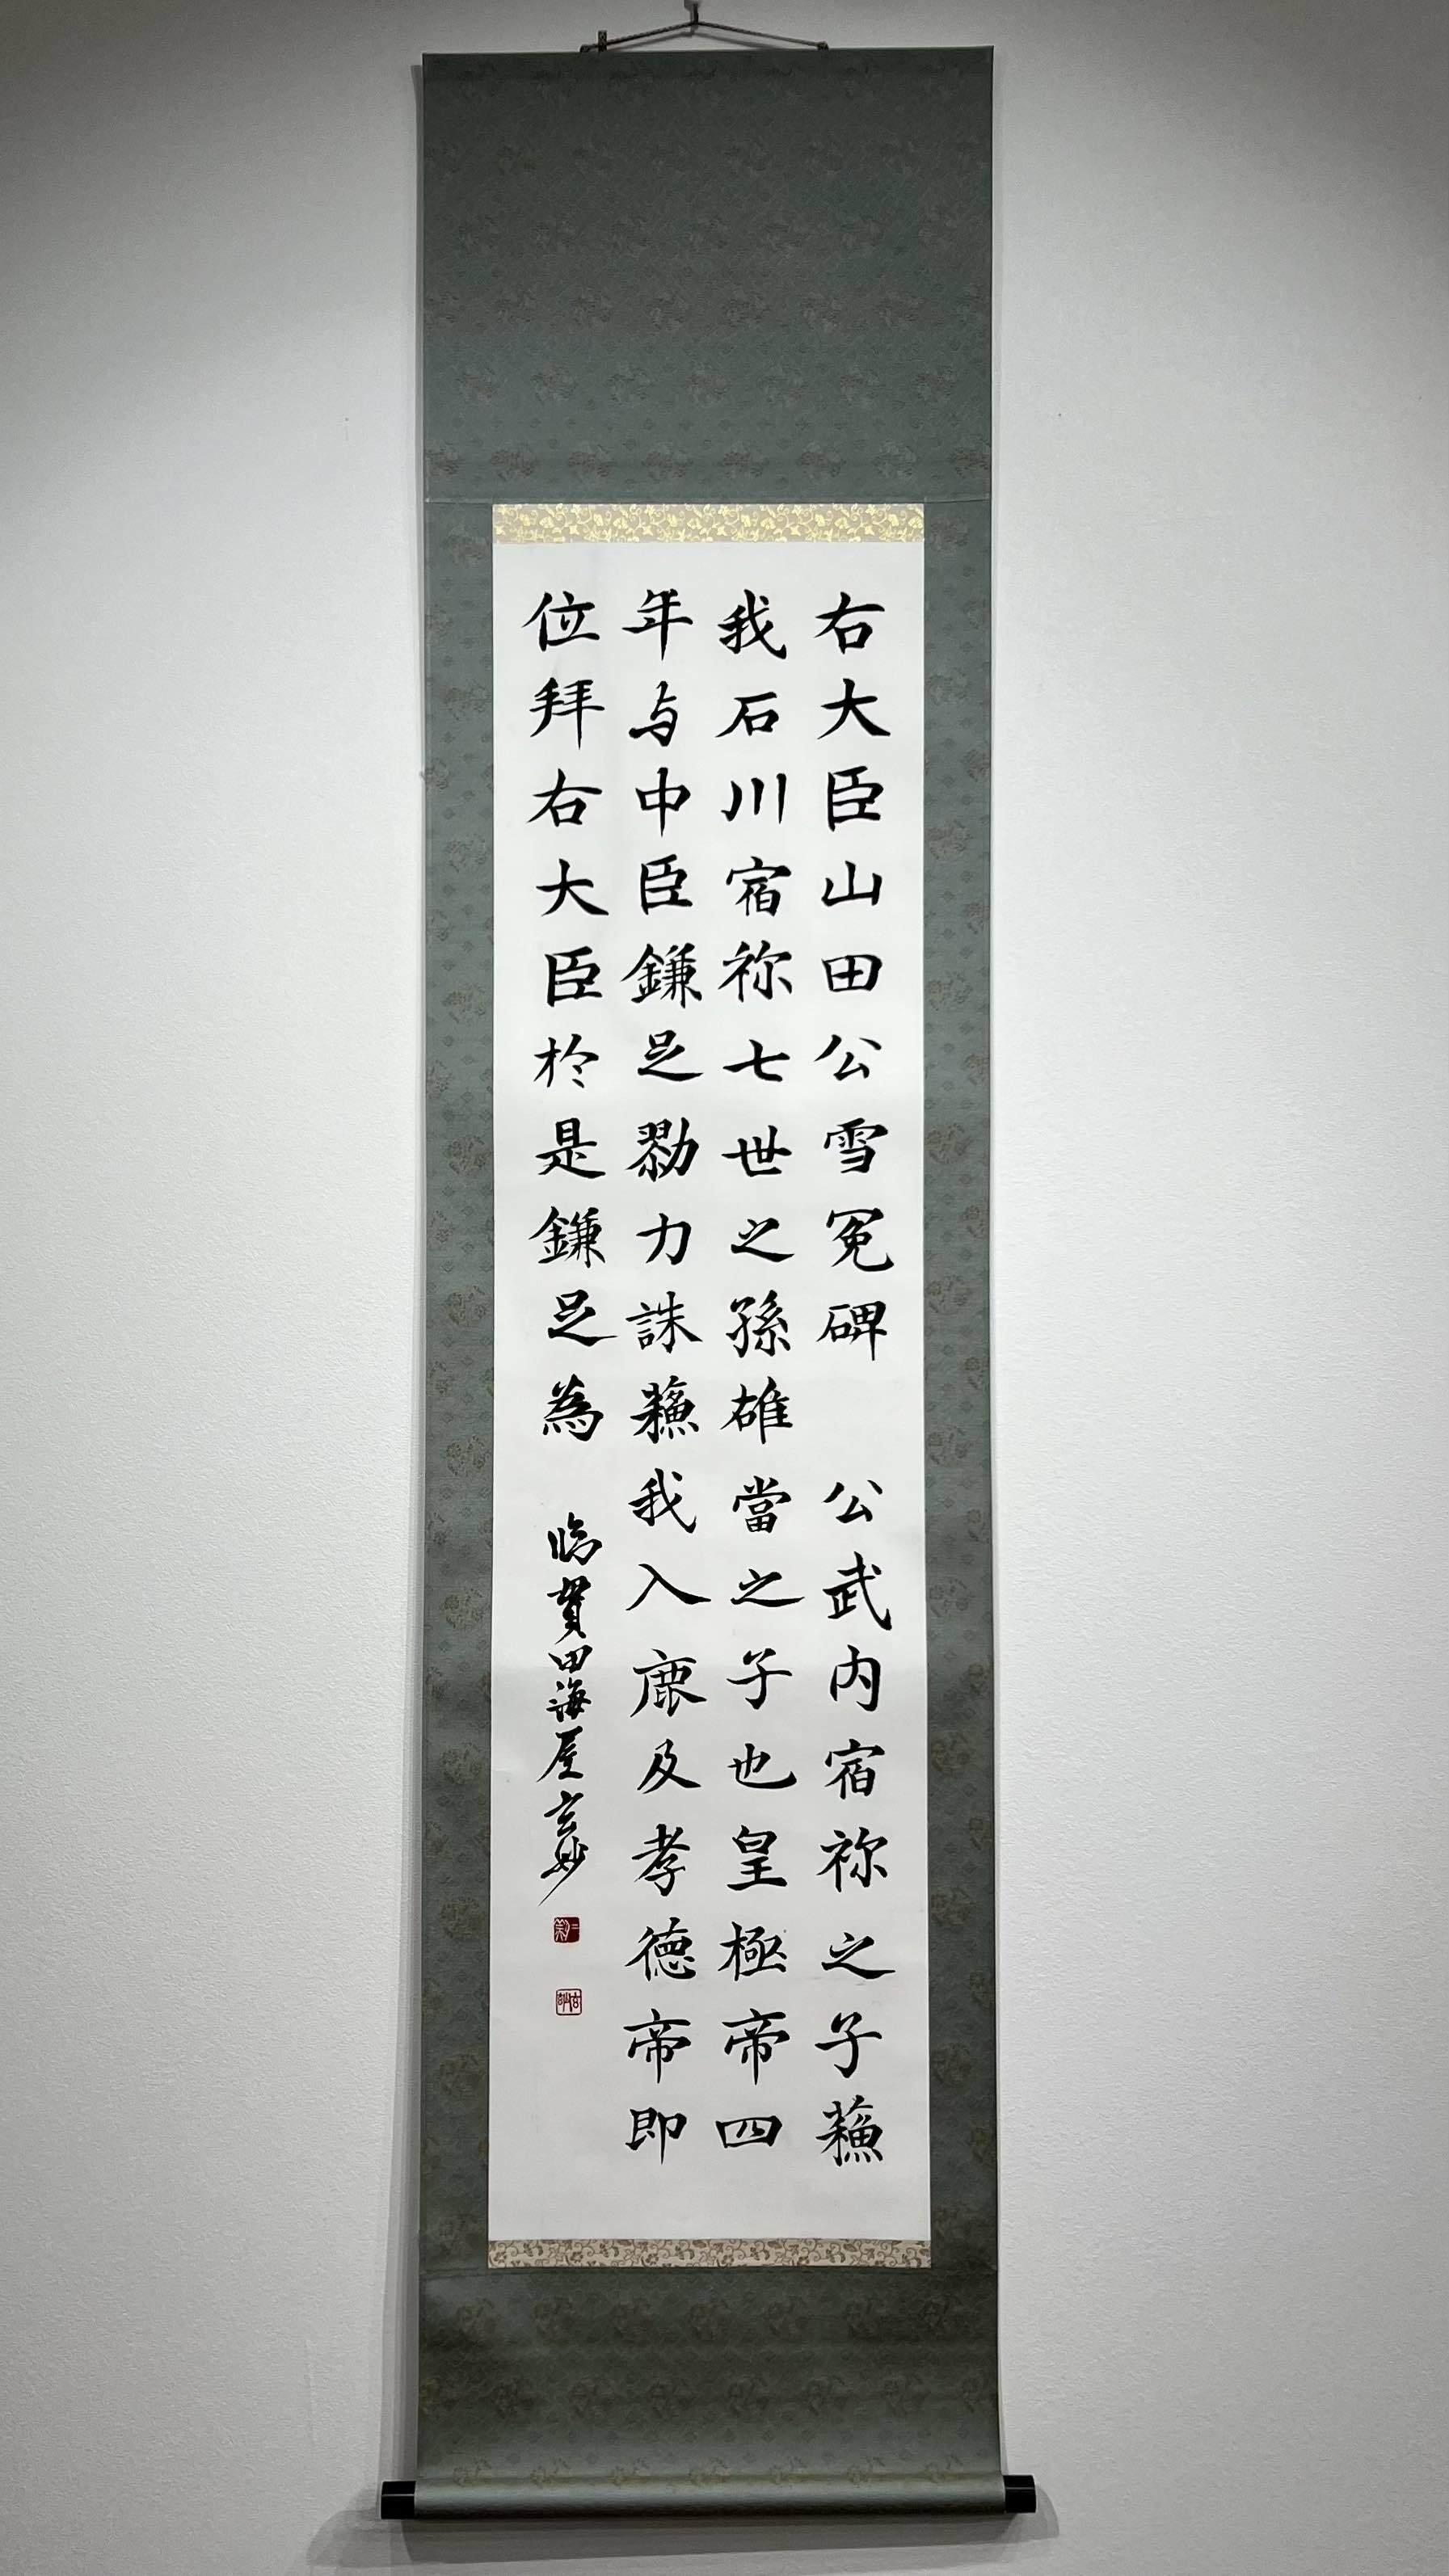 右大臣山田公雪冤碑　公武内宿祢之子蘓
我石川宿祢七世之孫雄當之子也皇極帝四
年与中臣鎌足勠力誅蘓我入鹿及孝德帝即
位拜右大臣於是鎌足為
臨貫田海屋玄妙